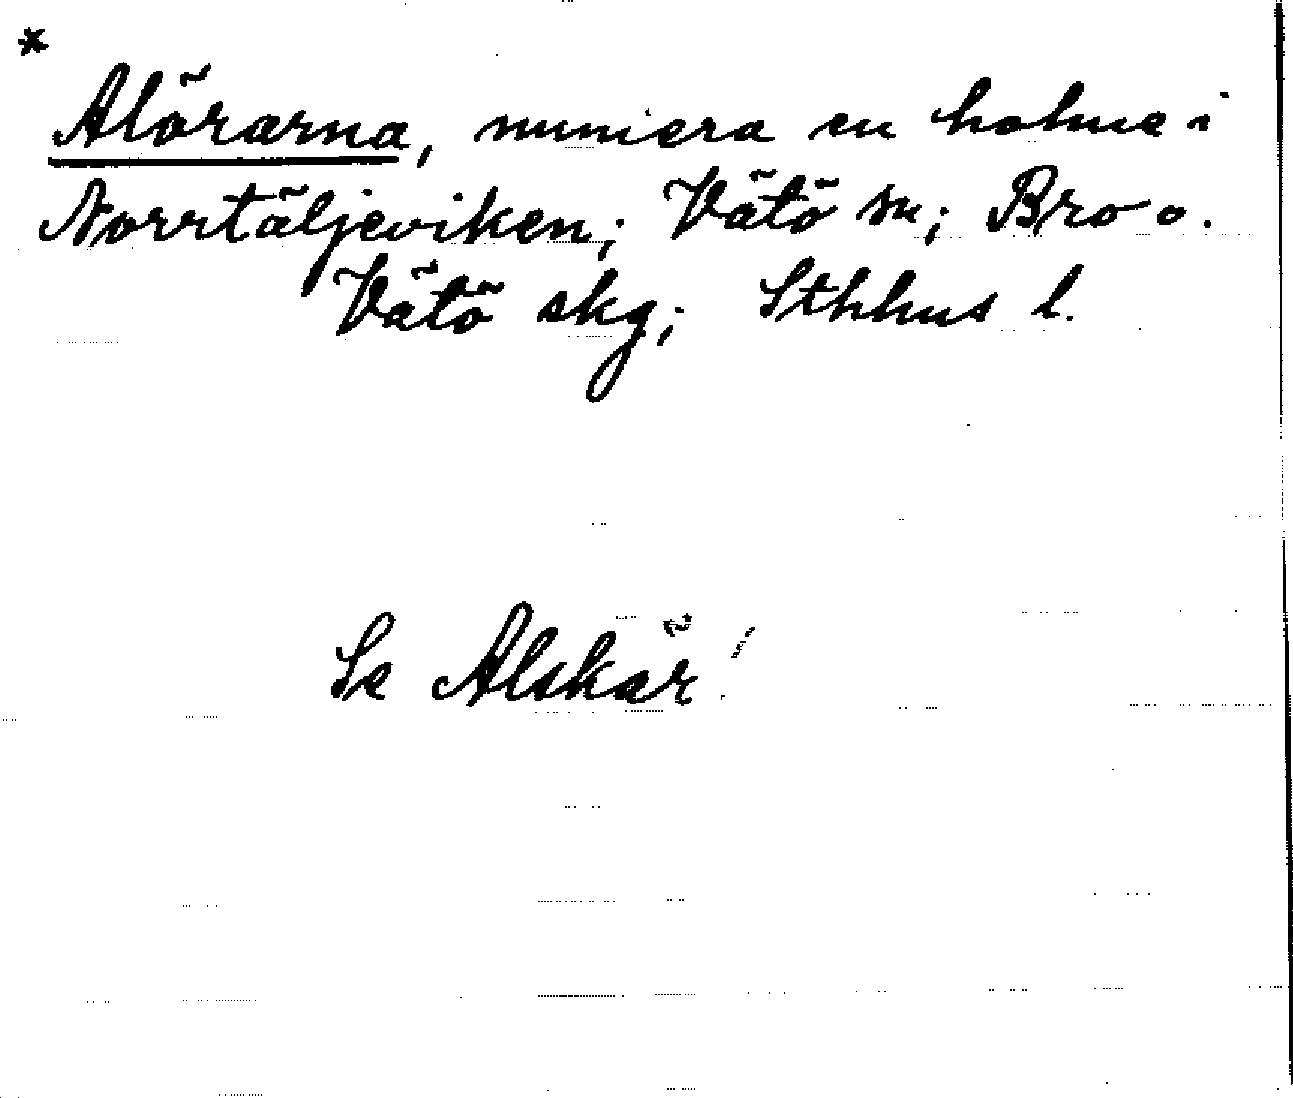 *
Alörarna, numera en holme i
Norrtäljeviken; Vätö sn; Bro o.
Vätö skg; Sthlms l.
Se Alskär!